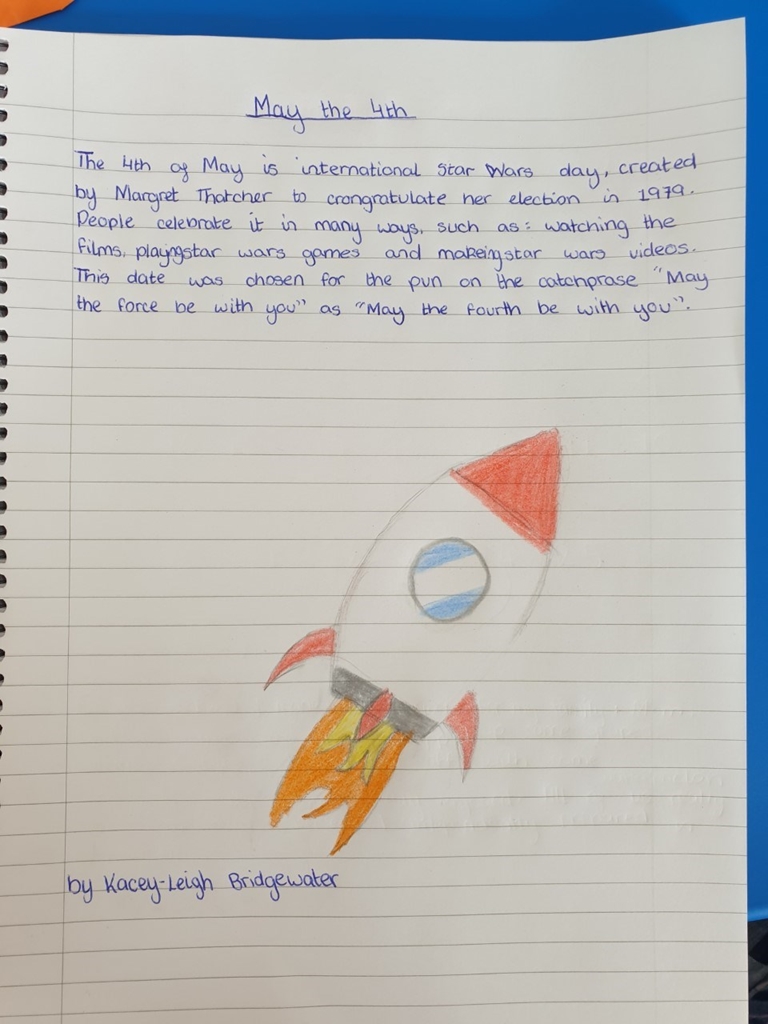 May the 4th
The 4th of May is international Star Wars day, created
by Margret Thatcher to crongratulate her election in 1979.
People celebrate it in many ways, such as: watching the
films, playingstar wars games and makeingstar wars videos.
This date was chosen for the pun on the catchprase "May
the force be with you" as "May the fourth be with you".
by Kacey-Leigh Bridgewater